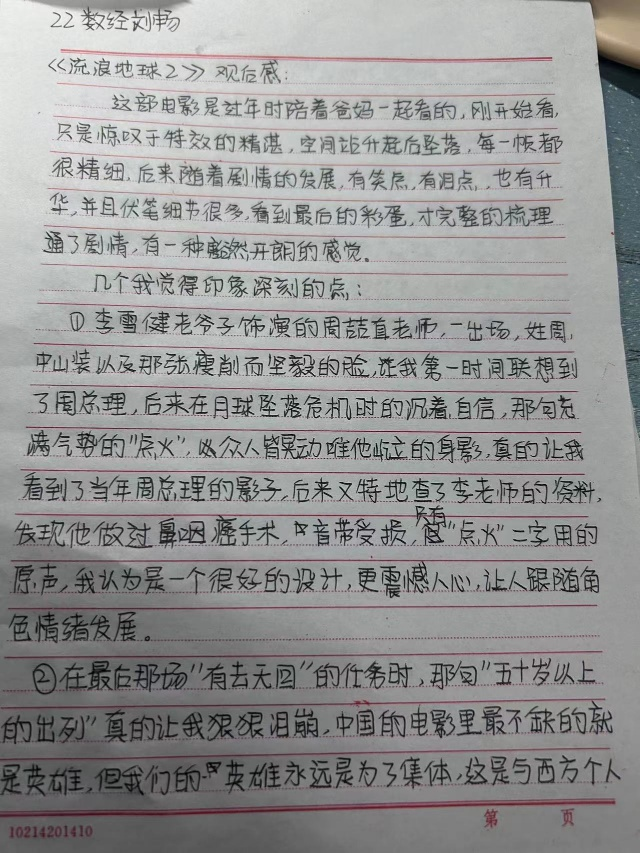 22数经刘畅
《流浪地球2》观后感:
这部电影是过年时陪着爸妈一起看的,刚开始看,
只是惊叹于特效的精湛,空间站升起后坠落,每一帧都
很精细,后来随着剧情的发展,有笑点,有泪点,也有升
华,并且伏笔细节很多,看到最后的彩蛋,才完整的梳理
通了剧情,有一种豁然开朗的感觉。
几个我觉得印象深刻的点:
①李雪健老爷子饰演的周喆直老师,一出场,姓周,
中山装以及那张瘦削而坚毅的脸,让我第一时间联想到
了周总理,后来在月球坠落危机时的沉着自信,那句充
满气势的"点火",以众人皆晃动唯他屹立的身影,真的让我
看到了当年周总理的影子,后来又特地查了李老师的资料,
发现他做过鼻咽癌手术,音带受损,只有"点火"二字用的
原声,我认为是一个很好的设计,更震憾人心,让人跟随角
色情绪发展。
②在最后那场"有去无回"的任务时,那句"五十岁以上
的出列"真的让我狠狠泪崩,中国的电影里最不缺的就
是英雄,但我们的英雄永远是为了集体,这是与西方个人
第 页
10214201410